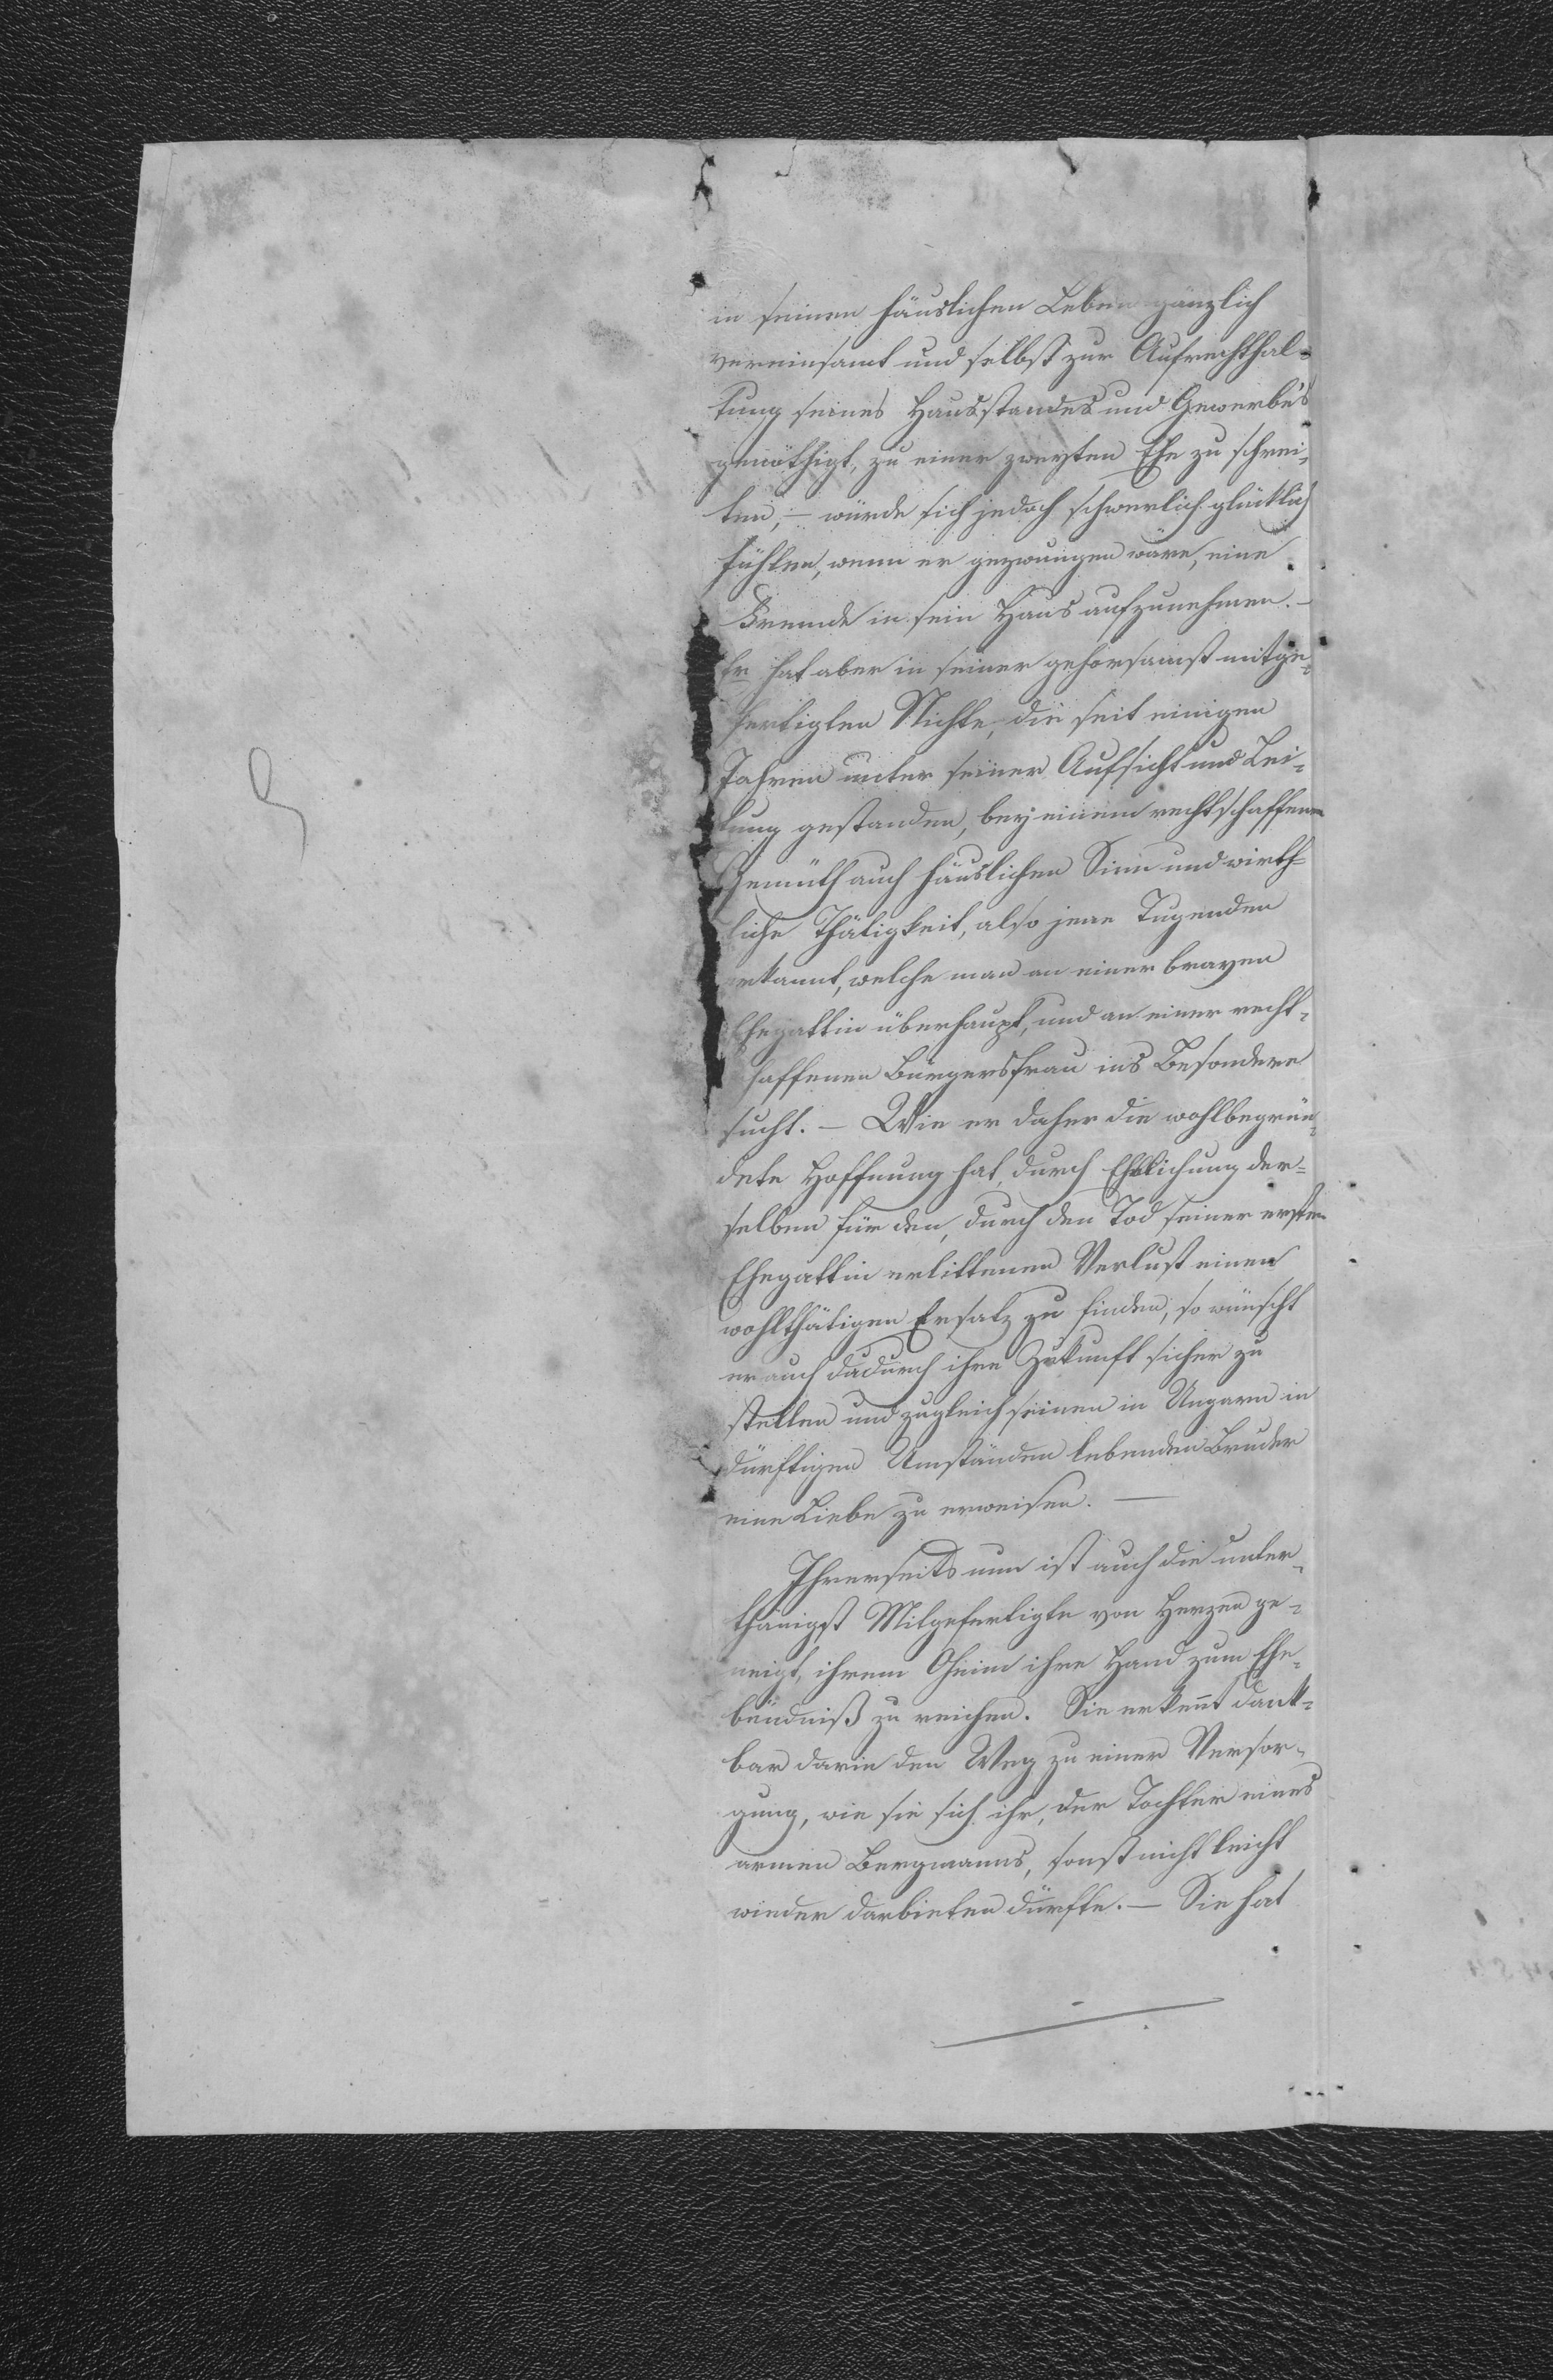 in seinen häuslichen Leben gänzlich
vereinsamt und selbst zur Aufrechthal-
tung seines Hausstandes und Gewerbe's
genöthigt, zu einer zweyten Ehe zu schrei-
ten, – würde sich jedoch schwerlich glücklich
fühlen, wenn er gezwungen wäre, eine
Fremde in sein Haus aufzunehmen. –
Er hat aber in seiner gehorsamst mitge-
fertigten Nichte, die seit einigen
Jahren unter seiner Aufsicht und Lei-
tung gestanden, bey einem rechtschaffenen
Gemüth auch häuslichen Sinn und wirth-
liche Thätigkeit, also jene Tugenden
erkannt, welche man an einer braven
Ehegattin überhaupt, und an einer recht-
schaffenen Bürgersfrau ins Besondere
sucht. – Wie er daher die wohlbegrün-
dete Hoffnung hat, durch Ehelichung der-
selben für den, durch den Tod seiner ersten
Ehegattin erlittenen Verlust einen
wohlthätigen Ersatz zu finden, so wünscht
er auch dadurch ihre Zukunft sicher zu
stellen und zugleich seinen in Ungarn in
dürftigen Umständen lebenden Bruder
eine Liebe zu erweisen. –
Ihrerseits nun ist auch die unter-
thänigst Mitgefertigte von Herzen ge-
neigt, ihrem Oheim ihre Hand zum Ehe-
bündniß zu reichen. Sie erkennt dank-
bar darin den Weg zu einer Versor-
gung, wie sie sich ihr, der Tochter eines
armen Bergmanns, sonst nicht leicht
wieder darbieten dürfte. – Sie hat